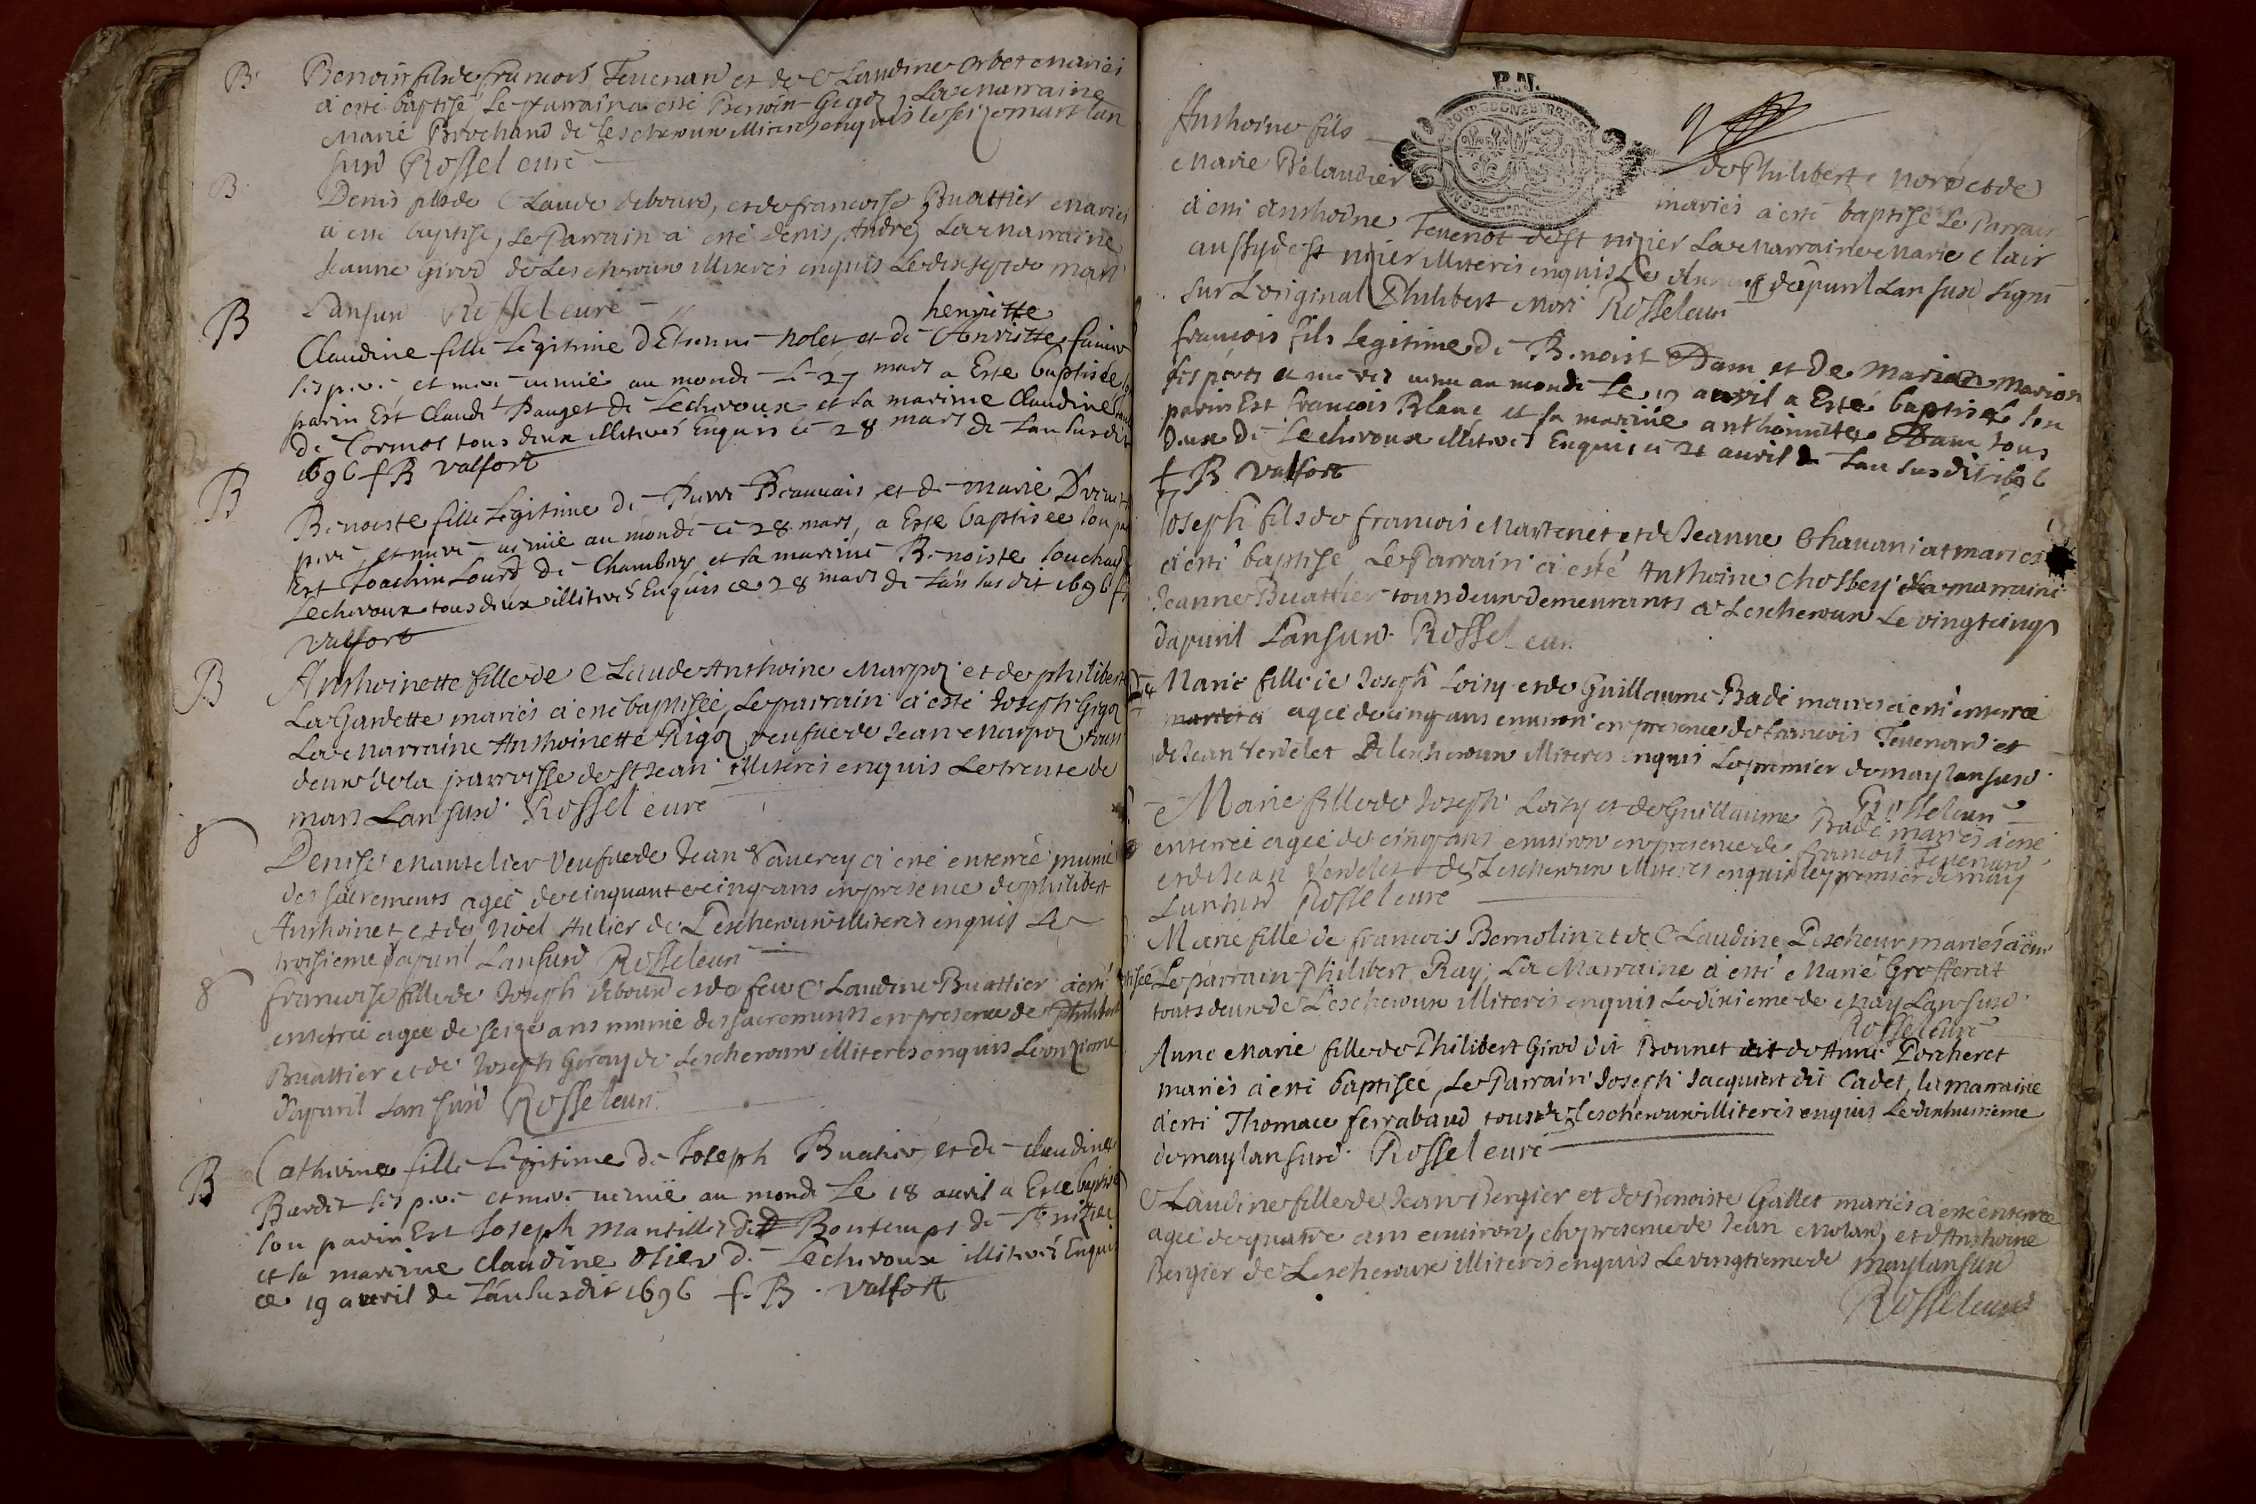 B
Benoist fils de francois Teuenard et de Claudine Orbet mariés
a esté baptisé Le parrain a esté Benoin Gigoz, La Marraine
Marie Brochand de Lescheroux illiteres enquis le seizemars lan
susd Rossel curé
B
Denis fils de Claude debourd, et de francoise Buattier mariés
a esté baptisé, Le Parrain a esté denis André, La Marraine
Jeanne Girod de Lescheroux illiteres enquis Le dixsept de mars
Lansusd Rossel curé
B
henriette
Claudine fille Legitime dEtienne Nolet et de henriette
ses pere et mere venüe au monde Le 27 mars a Este baptisée
parin Est Claude Pauget de Lecheroux et sa marine Claudine
de Cormos tous deux illiterés Enquis ce 28 mars de Lansusdit
1696 f B Valfort
B
Benoiste fille Legitime de Pierre Beauuais et de marie
pere et mere venüe au monde ce 28 mars, a Este baptisee son
Est Joachin Lourd de Chambery et sa marine Benoiste
Lecheroux tous deux illiterés Enquis ce 28 mars de Lan susdit 1696 f
Valfort
B
Anthoinette fille de Claude Anthoine Marpoz et de philiberte
La Gardette mariés a esté baptisée, Le parrain a esté Joseph Gigoz
La Marraine Anthoinette Rigoz veufue de Jean Marpoz tous
deux de la parroisse de St Jean illiteres enquis Le trente de
mars Lan susd. Rossel curé
8
Denise Mantelier Veufue de Jean Vauerey a esté enterrée munie
des sacrements agée de cinquante cinq ans en presence de philibert
Anthoinet et de Noël Aulier de Lescheroux illiteres enquis Le
troisieme d'apuril Lansusd Rossel curé
8
francoise fille de Joseph debourd et de feue Claudine Buattier a esté
enterrée agée de seize ans munie des sacrements en presence de Philibert
Buattier et de Joseph Giroud de Lescheroux illiteres enquis Le onzieme
d'apuril Lan susd Rossel curé
B
Catherine fille Legitime de Joseph Buatier et de Claudine
Burdet ses pere et mere venüe au monde Le 18 auril a Este baptisé
son parin Est Joseph Mantillier dit Bontemps de St nizier
et sa marine Claudine Olier de Lecheroux illiterés Enquis
ce 19 auril de Lan susdit 1696 f. B. Valfort
P.N.
Anthoine fils de Philibert Moré et de
Marie Belaudier mariés a esté baptisé Le Parrain
a esté Anthoine Teuenot de St nizier La Marraine Marie Clair
aussy de St nizier illiteres enquis Le d'apuril Lan susd signé
sur L'original Philibert Moré Rossel curé
francois fils Legitime de Benoist Dam et de Marie Marion
ses peres et meres venu au monde Le 17 auril a Esté baptisé son
parin Est francois Blanc et sa marine anthoinette Dam tous
Deux de Lecheroux illiterés Enquis ce 21 auril de Lan susdit 1696
f B Valfort
Joseph fils de francois Martenet et de Jeanne Chauaniat mariés
a esté baptisé Le Parrain a esté Anthoine Chossey La marraine
Jeanne Buattier tous deux demeurants a Lescheroux Le vingtcinq
d'apuril Lansusd. Rossel cur.
Marie fille de Joseph Loisy et de Guillaume Badé mariés a esté enterrée
agée de cinq ans environ en presence de francois Teuenard et
de Jean Verdelet de Lescheroux illiteres enquis Le premier de may lan susd
Rossel curé
Marie fille de Joseph Loisy et de Guillaume Badé mariés a esté
enterrée agée de cinq ans environ en presence de francois Teuenard
et de Jean Verdelet de Lescheroux illiteres enquis le premier de may
Lansusd Rossel curé
Marie fille de francois Bernolin et de Claudine Pescheur mariés a esté
baptisée Le parrain Philibert Ray, La Marraine a esté Marie Grofferat
touts deux de Lescheroux illiteres enquis Le dixieme de May Lansusd
Rossel curé
Anne Marie fille de Philibert Girod dit Bonnet et de Anne Porcheret
mariés a esté baptisée, Le Parrain Joseph Jacquiert dit Cadet, la marraine
a esté Thomace ferrabaud tous de Lescheroux illiteres enquis Le dixhuitieme
de may lansusd. Rossel curé
Claudine fille de Jean Bergier et de Benoiste Gallet mariés a esté enterrée
agée de quatre ans environ, en presence de Jean Molard, et d'Anthoine
Bergier de Lescheroux illiteres enquis Le vingtieme de may lan susd
Rossel curé